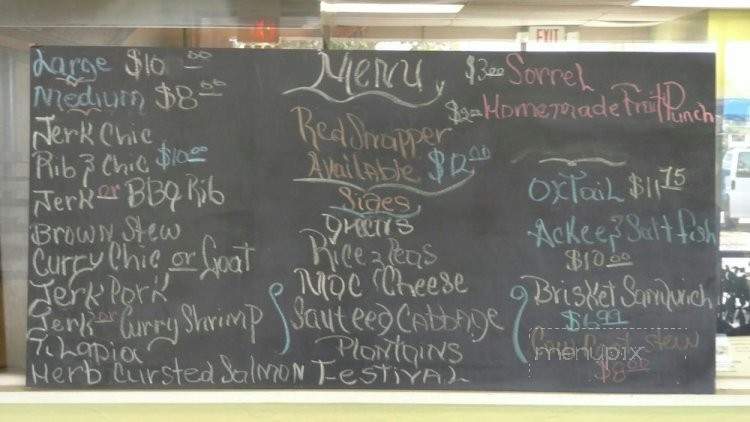 EXIT
Large $10.00
Medium $8.00
Jerk Chic
Rib & Chic $10.00
Jerk or BBQ Rib
Brown Stew
Curry Chic or Goat
Jerk Pork
Jerk or Curry Shrimp
Tilapia
Herb Cursted Salmon
Menu
Red Snapper
Available $12.00
Sides
Rice & Peas
Mac Cheese
Sauteed Cabbage
Plantains
Festival
$3.00 Sorrel
Homemade Fruit Punch
Oxtail $11.75
Ackee & Saltfish
$10.00
Brisket Sandwich
$6.99
Stew
$8.00
menupix